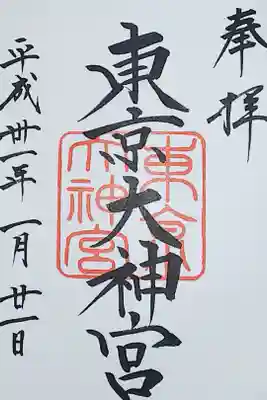 奉拝
東京大神宮
東京大神宮
平成卅一年一月廿一日